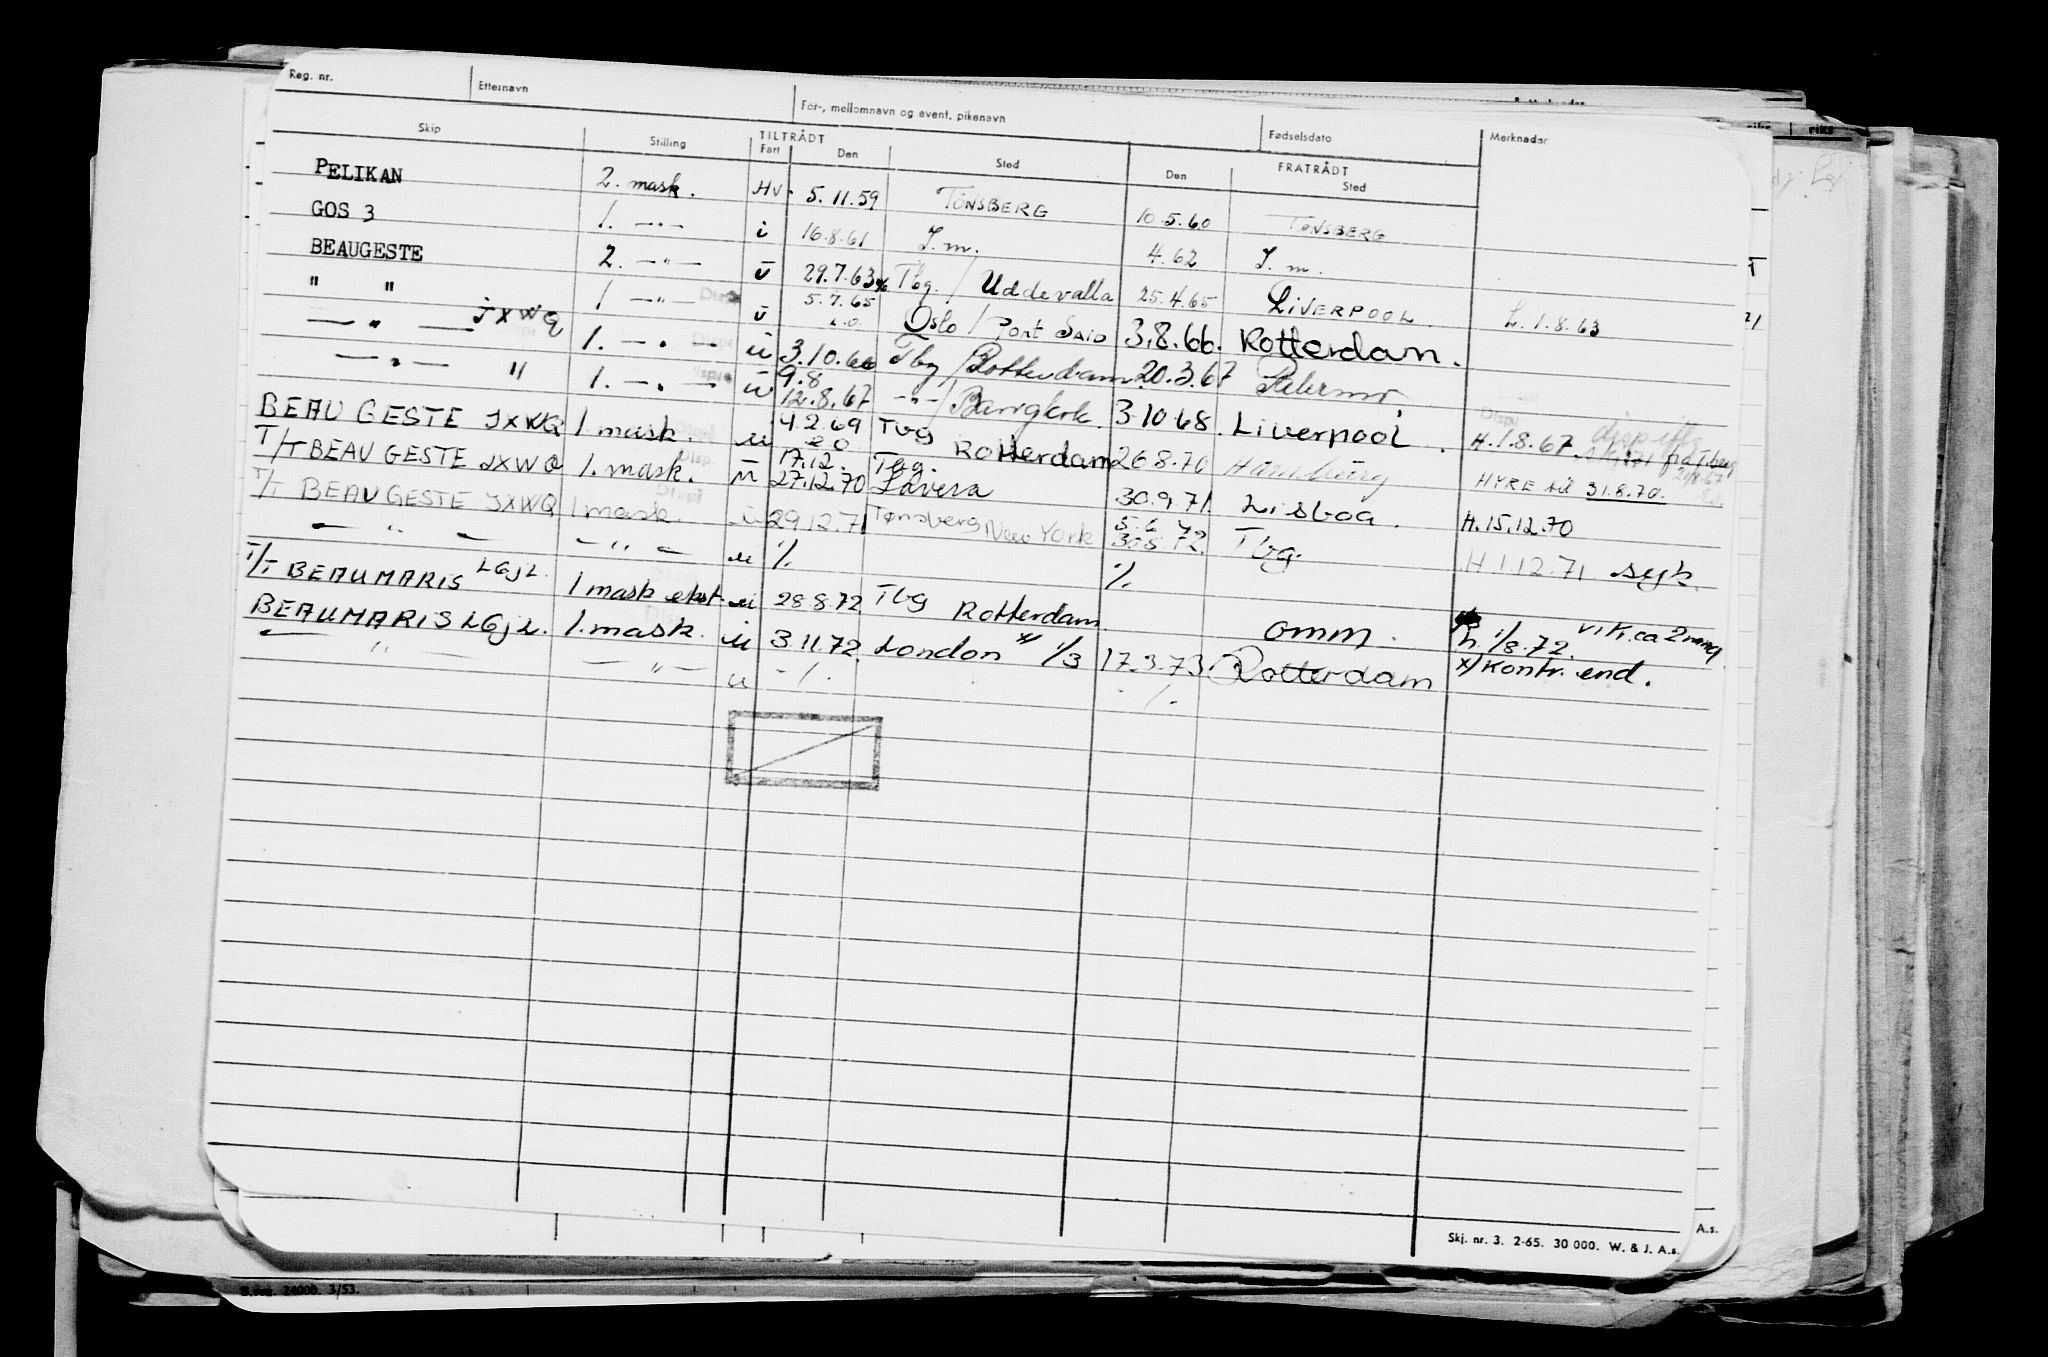 Reg. nr. Etternavn For-, mellomnavn og event. pikenavn Fødselsdato Merknader
Skip Stilling TILTRÅDT Fart Den Sted FRATRÅDT Den Sted
PELIKAN 2. mask. Hv. 5.11.59 TØNSBERG 10.5.60 TØNSBERG
GOS 3 1. —"— i 16.8.61 S.m. 4.62 S.m.
BEAUGESTE 2. —"— ū 29.7.63 Tbg. / Uddevalla 25.4.65 LIVERPOOL. L. 1.8.63
" " 1 —"— ū 5.7.65 Oslo / Port Said 3.8.66. Rotterdam.
—"— JXWQ 1. —"— ū 3.10.66 Tbg / Rotterdam 20.3.67 Palermo
—"— " 1. —"— ū 9.8 12.8.67 —"— / Bangkok 3 10 68. Liverpool. H. 1.8.67
BEAU GESTE JXWQ 1 mask. u 4.2.69 Tbg Rotterdam 26 8.70 Hamburg HYRE til 31.8.70.
T/T BEAU GESTE JXWQ 1. mask. u 17.12. 27.12.70 Tbg. Lavera 30.9.71 Lisboa. H. 15.12.70
T/T BEAU GESTE JXWQ 1 mask. u 29.12.71 Tønsberg New York 5.6 72 30.5 72. Tbg. H 1.12.71 syk.
— " — — " — u % %
T/T BEAUMARIS LGJL. 1 mask ekst. u 28.8.72 Tbg Rotterdam omm. h. 1/8.72. vik. ca 2 mnd
BEAUMARIS LGJL. 1. mask. u 3.11.72. London x/ 1/3 17.3.73. Rotterdam x/ Kontr. end.
— " — — " — u -%. -%.
Skj. nr. 3. 2-65. 30 000. W. & J. A.s.
A.s.
24000. 3/53.